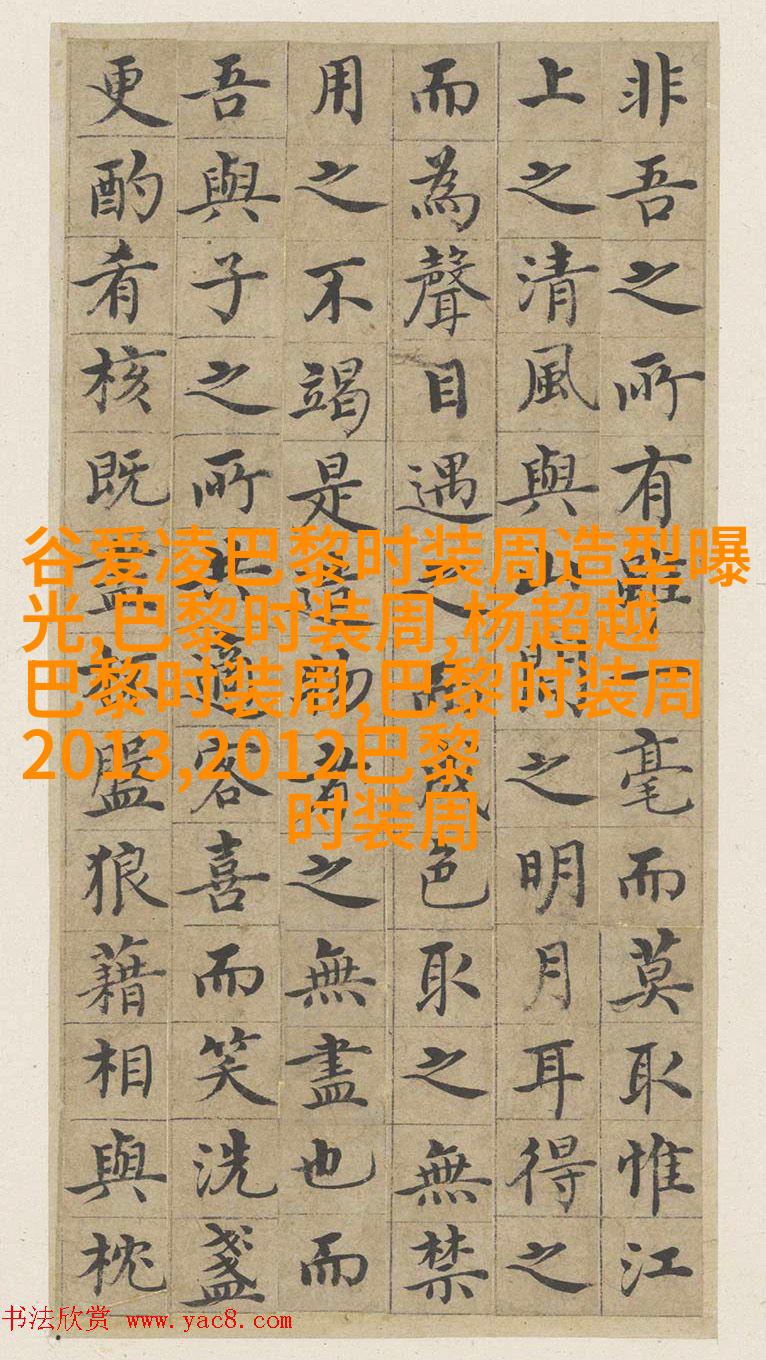 非吾之所有雖一毫而莫取惟江
上之清風與山間之明月耳得之
而為聲目遇之而成色取之無禁
用之不竭是造物者之無盡也而
吾與子之所共適客喜而笑洗盞
更酌肴核既盡杯盤狼藉相與枕
谷爱凌巴黎时装周造型曝
光,巴黎时装周,杨超越
巴黎时装周,巴黎时装周
2013,2012巴黎
时装周
书法欣赏 www.yac8.com